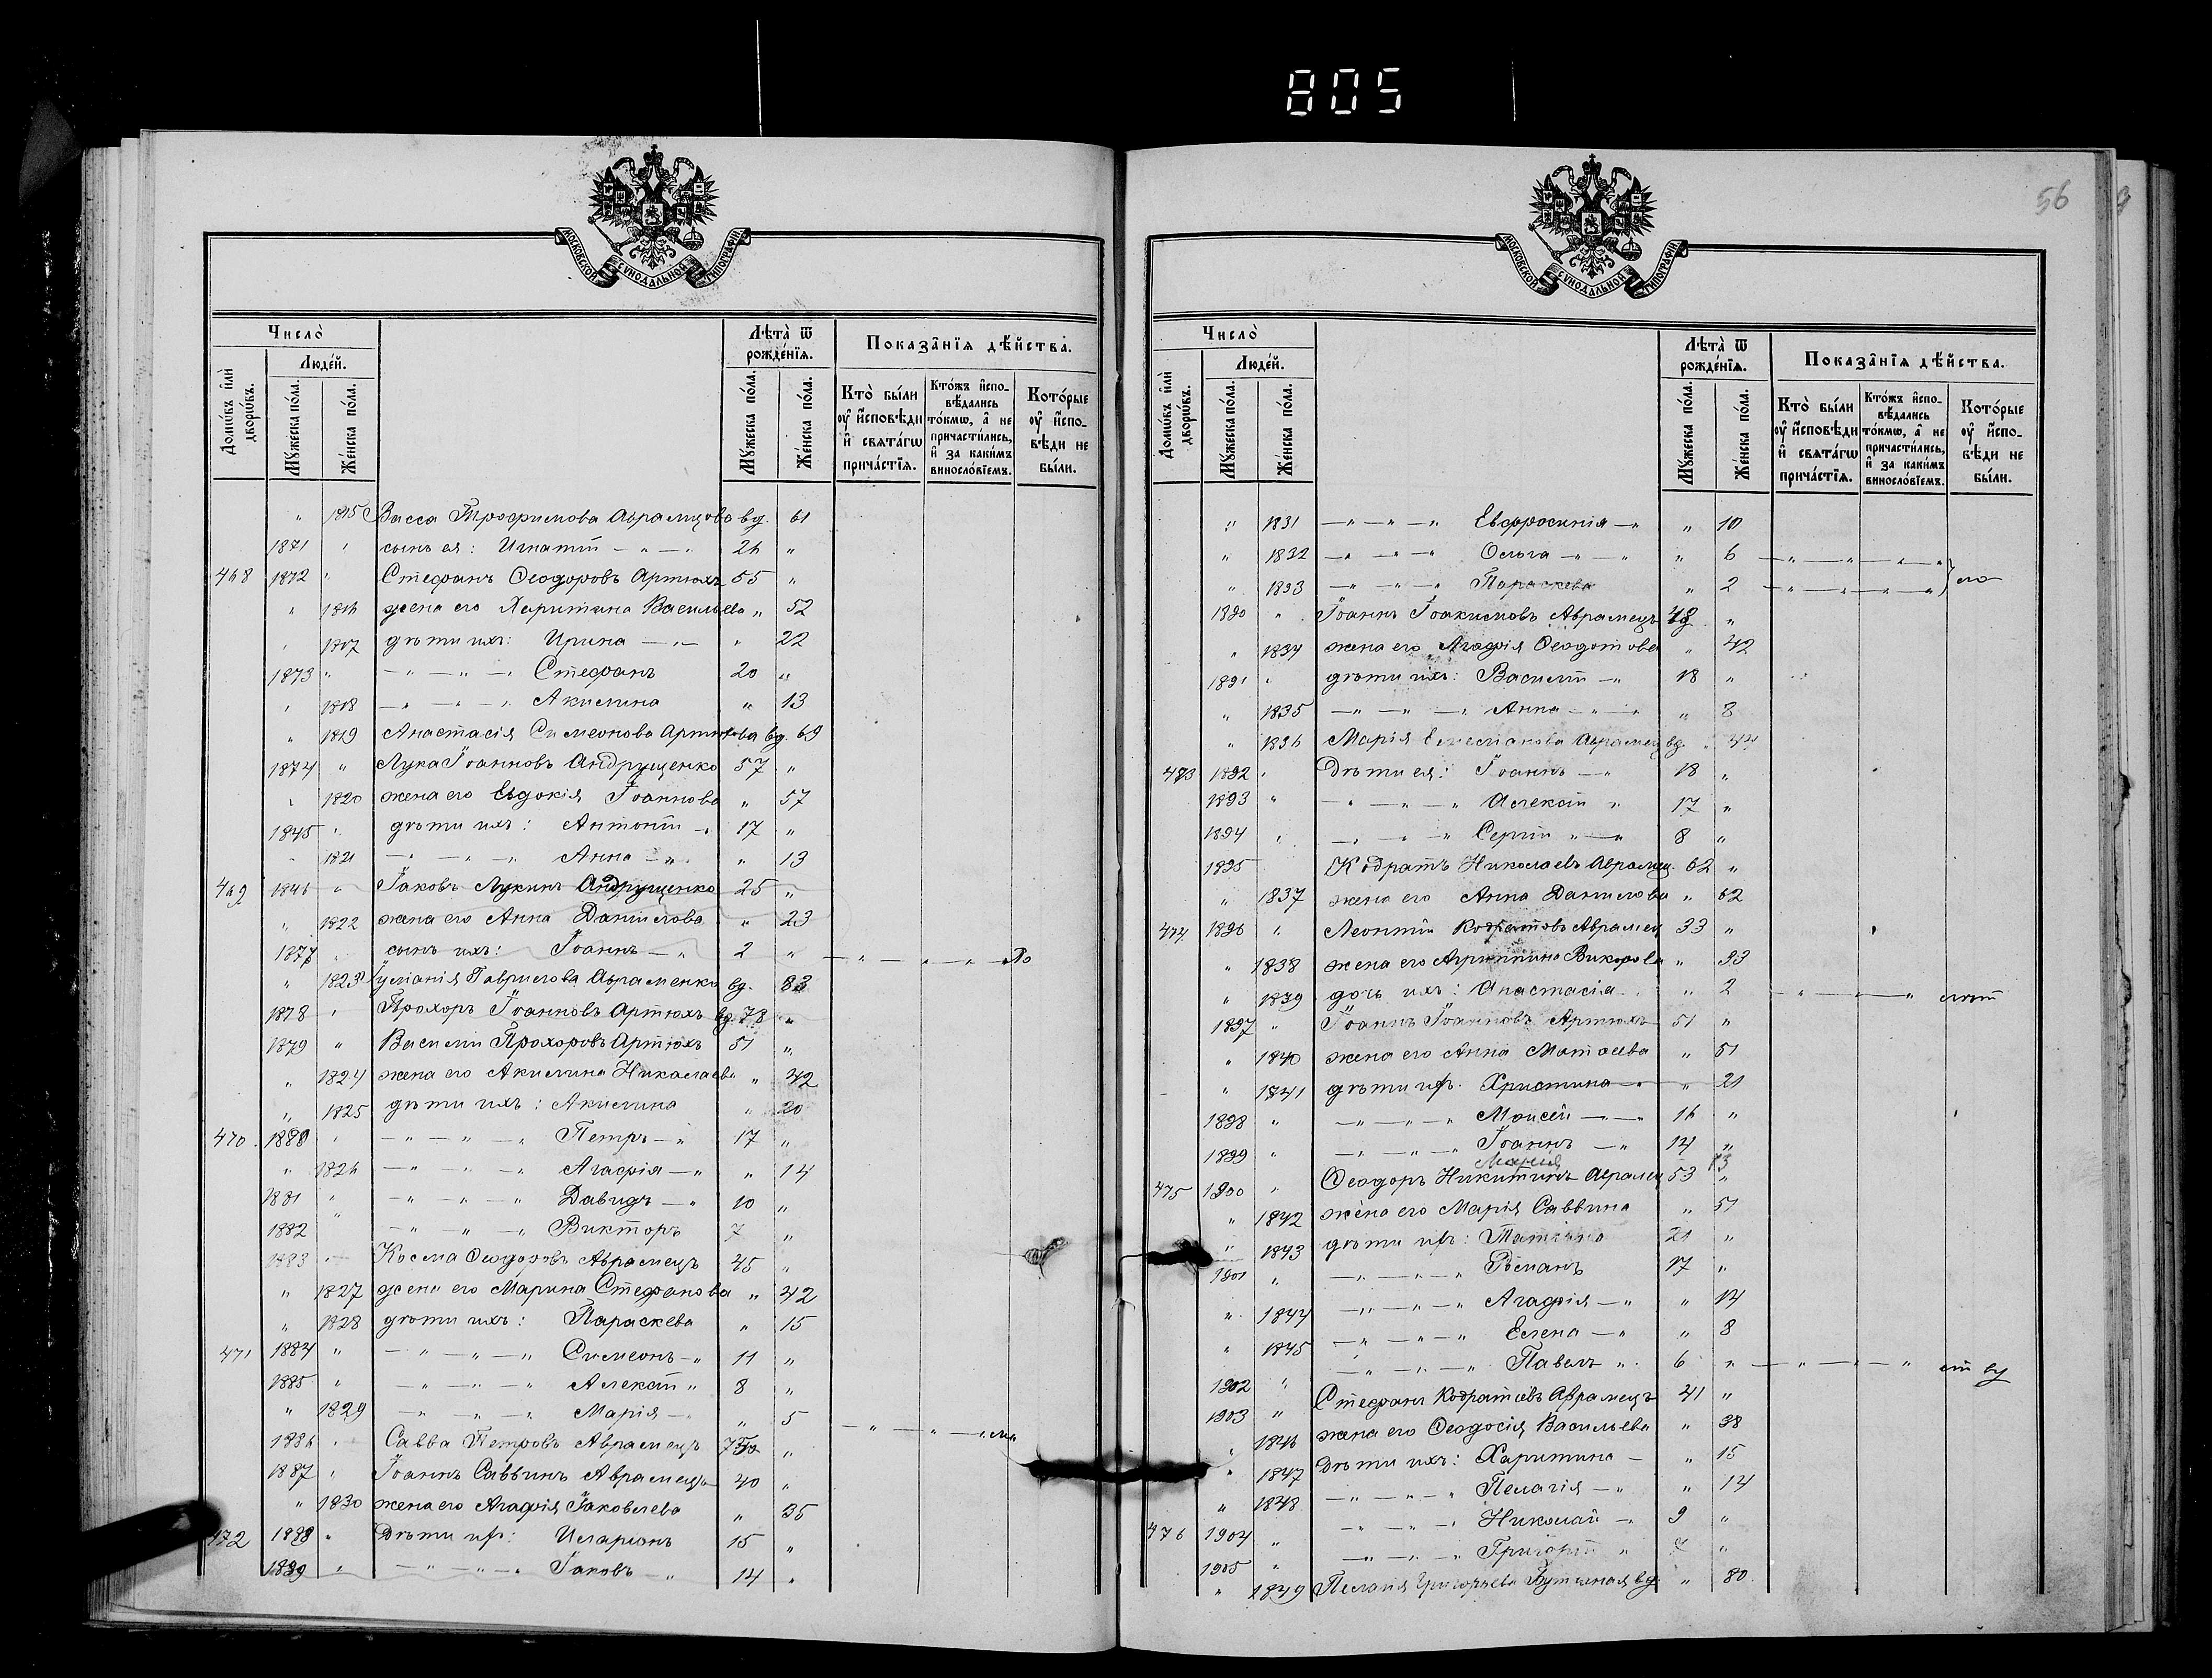 805
56
МОСКОВСКОЙ СѴНОДАЛЬНОЙ ТИПОГРАФІИ
Число̀
Людей.
Домѡ́въ и҆лѝ дворѡ́въ.
Мꙋ́жеска по́ла.
Же́нска по́ла.
Лѣта̀ ѿ рожде́нїѧ.
Мꙋ́жеска по́ла.
Же́нска по́ла.
Показа̂нїѧ дѣ́йства.
Кто̀ бы́ли оу҆ и҆сповѣди и҆ свѧта́гѡ прича́стїѧ.
Кто́жъ и҆спо-вѣ́дались то́кмѡ, а҆ не причасти́лись, и҆ за каки́мъ винослов́їемъ.
Кото́рые оу҆ и҆спо-вѣди не бы́ли.
" 1815 Васса Трофимова Аврамцова вд. 61
1871 " сынъ ея: Игнатій — " — 26 "
468 1872 " Стефанъ Ѳеодоровъ Артюхъ 55 "
" 1816 жена его Харитина Васильева " 52
" 1817 дѣти ихъ: Ирина — " — " 22
1873 " — " — " — " Стефанъ 20 "
" 1818 — " — " — " Акилина " 13
" 1819 Анастасія Симеонова Артюхова вд. 69
1874 " Лука Іоанновъ Андрущенко 57 "
" 1820 жена его Евдокія Іоаннова " 57
1845 " дѣти ихъ: Антоній — " 17 "
" 1821 — " — " — " Анна — " " 13
469 1846 " Іаковъ Лукинъ Андрущенко 25 "
" 1822 жена его Анна Данилова " 23
1877 " сынъ ихъ: Іоаннъ — " 2 " — " — " — " — "
" 1823 Гавриілова Авраменко вд. 83
1878 " Прохоръ Іоанновъ Артюхъ вд. 78 "
1879 " Василій Прохоровъ Артюхъ 51 "
" 1824 жена его Акилина Николаева " 42
" 1825 дѣти ихъ: Акилина " 20
470 1880 " — " — " — " Петръ — " 17 "
" 1826 — " — " — " Агафія — " " 14
1881 " — " — " — " Давидъ — " 10 "
1882 " — " — " — " Викторъ 7 "
1883 " Косма Ѳеодоровъ Аврамецъ 45 "
" 1827 жена его Марина Стефанова " 42
" 1828 дѣти ихъ: Параскева " 15
471 1884 " — " — " — " Симеонъ — " 11 "
1885 " — " — " — " Алексій " 8 "
" 1829 — " — " — " Марія — " " 5 — " — " — "
1886 " Савва Петровъ Аврамецъ "
1887 " Іоаннъ Саввинъ Аврамецъ 40 "
" 1830 жена его Агафія Іаковлева " 35
472 1888 " Дѣти их: Иларіонъ 15 "
1889 " — " — " — " Іаковъ — " 14 "
МОСКОВСКОЙ СѴНОДАЛЬНОЙ ТИПОГРАФІИ
Число̀
Людей.
Домѡ́въ и҆лѝ дворѡ́въ.
Мꙋ́жеска по́ла.
Же́нска по́ла.
Лѣта̀ ѿ рожде́нїѧ.
Мꙋ́жеска по́ла.
Же́нска по́ла.
Показа̂нїѧ дѣ́йства.
Кто̀ бы́ли оу҆ и҆сповѣди и҆ свѧта́гѡ прича́стїѧ.
Кто́жъ и҆спо-вѣ́дались то́кмѡ, а҆ не причасти́лись, и҆ за каки́мъ винослов́їемъ.
Кото́рые оу҆ и҆спо-вѣди не бы́ли.
" 1831 — " — " — " Евфросинія — " " 10
" 1832 — " — " — " Ольга — " — " " 6 — " — " — " — "
" 1833 — " — " — " Параскева " 2 — " — " — " — "
1890 " Іоаннъ Іоакимовъ Аврамецъ 48 "
" 1834 жена его Агафія Ѳеодотова " 42
1891 " дѣти ихъ: Василій — " 18 "
" 1835 — " — " — " Анна — " — " " 8
" 1836 Марія Аврамец вд. " 44
473 1892 " Дѣти ея: Іоаннъ — " 18 "
1893 " — " — " — " Алексій " 17 "
1894 " — " — " — " Сергій " — " 8 "
1895 Кодратъ Николаевъ Аврамец. 62 "
" 1837 жена его Анна Данилова " 62
474 1896 " Леонтій Кодратовъ Аврамец 33 "
" 1838 жена его Агриппина " 33
" 1839 дочь ихъ: Анастасія " 2 — " — " — "
1897 " Іоаннъ Іоанновъ Артюхъ 51 "
" 1840 жена его Анна Матѳеева " 51
" 1841 дѣти их. Христина — " " 21
1898 " — " — " — " Моисей — " — " 16 "
1899 " — " — " — " Іоаннъ — " 14 "
Марія 13
475 1900 " Ѳеодоръ Никитинъ Аврамец 53 "
" 1842 жена его Марія Саввина " 51
" 1843 дѣти их: Татіана 21 "
1901 " — " — " — " Романъ 17 "
" 1844 — " — " — " Агафія — " " 14
" 1845 — " — " — " Елена — " " 8
1902 " — " — " — " Павелъ " 6 " — " — " — "
1903 " Стефанъ Кодратовъ Аврамецъ 41 "
" 1846 жена его Ѳеодосія Васильева " 38
" 1847 Дѣти ихъ: Харитина — " 15
" 1848 — " — " — " Пелагія — " " 14
476 1904 " — " — " — " Николай — " 9 "
1905 " — " — " — " Григорій " "
" 1849 Пелагія Григорьева вд. " 80